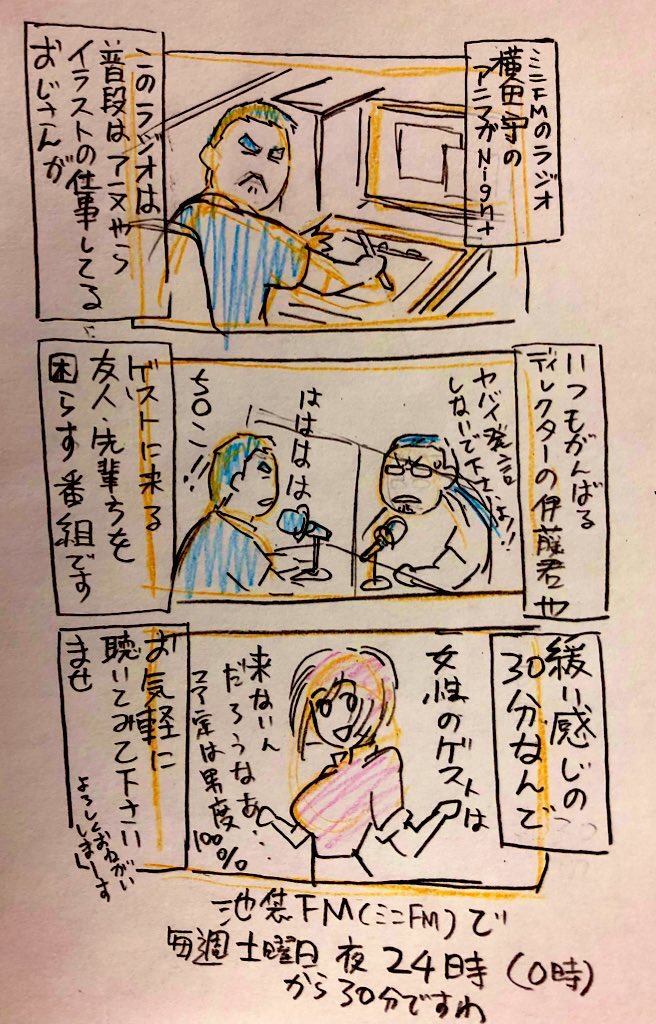 ミニFMのラジオ
横田守の
アニマガNight
このラジオは
普段はアニメやら
イラストの仕事してる
おじさんが
いつもがんばる
ディレクターの伊藤君や
ヤバイ発言
しないで下さいよ!!
はははは
ち〇こ!!
ゲストに来る
友人、先輩ちを
困らす番組です
緩い感じの
30分なんで
女性のゲストは
来ないん
だろうなあ…
予定は男度
100%
お気軽に
聴いてみて下さい
ませ
よろしくおねがい
しまーす
池袋FM(ミニFM)で
毎週土曜日夜24時(0時)
から30分ですわ